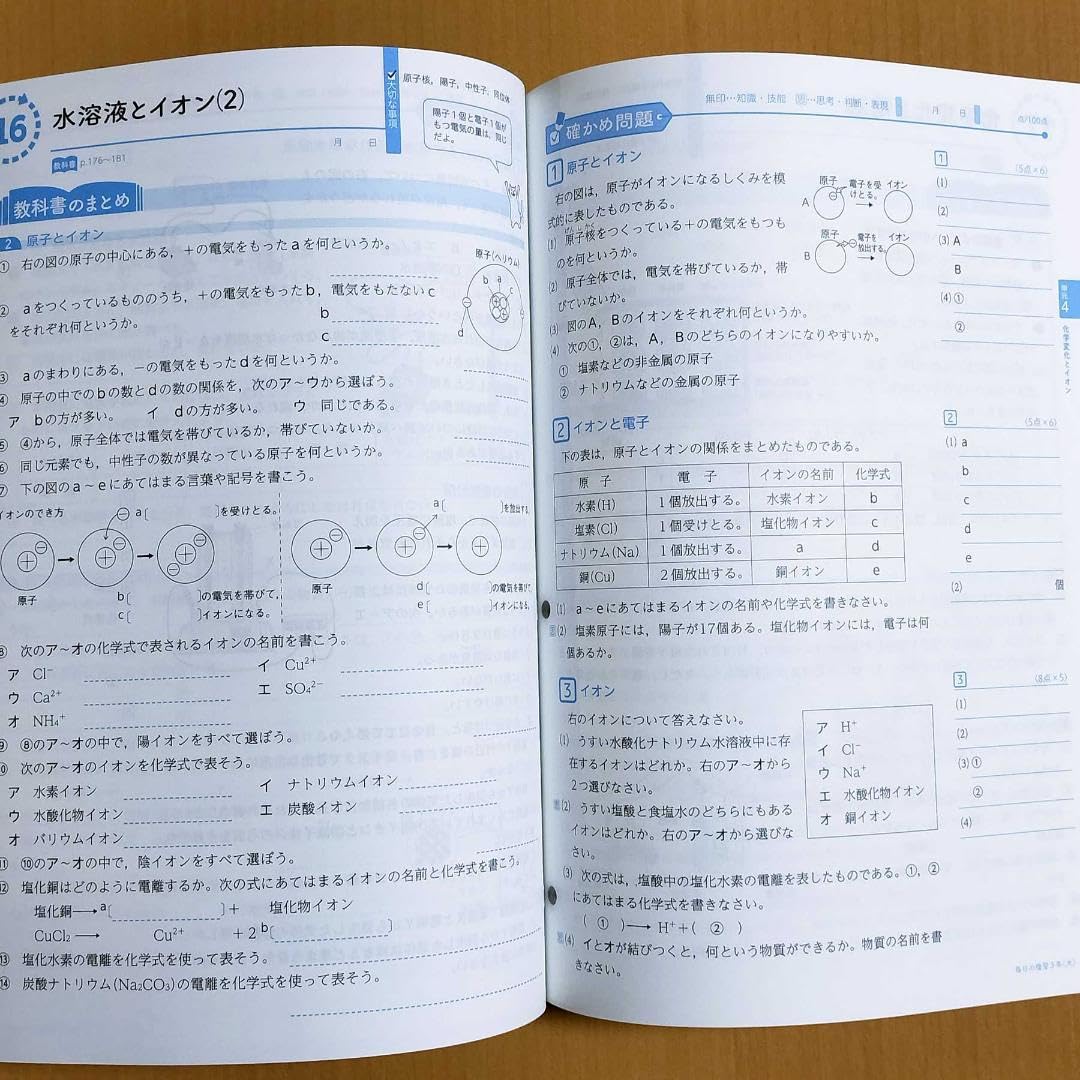 16
水溶液とイオン(2)
月　日
教科書 p.176～181
大切な事項
原子核，陽子，中性子，同位体
陽子1個と電子1個が
もつ電気の量は，同じ
だよ。
教科書のまとめ
2　原子とイオン
① 右の図の原子の中心にある，＋の電気をもったaを何というか。
② aをつくっているもののうち，＋の電気をもったb，電気をもたないc
をそれぞれ何というか。
b
c
原子(ヘリウム)
b a c
d
③ aのまわりにある，－の電気をもったdを何というか。
④ 原子の中でのbの数とdの数の関係を，次のア～ウから選ぼう。
ア　bの方が多い。　イ　dの方が多い。　ウ　同じである。
⑤ ④から，原子全体では電気を帯びているか，帯びていないか。
⑥ 同じ元素でも，中性子の数が異なっている原子を何というか。
⑦ 下の図のa～eにあてはまる言葉や記号を書こう。
イオンのでき方
a〔　　〕を受けとる。
原子
b〔　　〕の電気を帯びて，
c〔　　〕イオンになる。
a〔　　〕を放出する。
原子
d〔　　〕の電気を帯びて，
e〔　　〕イオンになる。
⑧ 次のア～オの化学式で表されるイオンの名前を書こう。
ア　Cl⁻
イ　Cu²⁺
ウ　Ca²⁺
エ　SO₄²⁻
オ　NH₄⁺
⑨ ⑧のア～オの中で，陽イオンをすべて選ぼう。
⑩ 次のア～オのイオンを化学式で表そう。
ア　水素イオン
イ　ナトリウムイオン
ウ　水酸化物イオン
エ　炭酸イオン
オ　バリウムイオン
⑪ ⑩のア～オの中で，陰イオンをすべて選ぼう。
⑫ 塩化銅はどのように電離するか。次の式にあてはまるイオンの名前と化学式を書こう。
塩化銅⟶a〔　　〕＋　塩化物イオン
CuCl₂ ⟶　Cu²⁺　＋ 2 b〔　　〕
⑬ 塩化水素の電離を化学式を使って表そう。
⑭ 炭酸ナトリウム(Na₂CO₃)の電離を化学式を使って表そう。
無印…知識・技能　思…思考・判断・表現
月　日
点/100点
確かめ問題
1　原子とイオン
右の図は，原子がイオンになるしくみを模
式的に表したものである。
(1) 原子核をつくっている＋の電気をもつも
のを何というか。
(2) 原子全体では，電気を帯びているか，帯
びていないか。
(3) 図のA，Bのイオンをそれぞれ何というか。
(4) 次の①，②は，A，Bのどちらのイオンになりやすいか。
① 塩素などの非金属の原子
② ナトリウムなどの金属の原子
A　原子　電子を受けとる。　イオン
B　原子　電子を放出する。　イオン
1　(5点×6)
(1)
(2)
(3) A
B
(4) ①
②
単元 4 化学変化とイオン
2　イオンと電子
下の表は，原子とイオンの関係をまとめたものである。
原　子　電　子　イオンの名前　化学式
水素(H)　1個放出する。　水素イオン　b
塩素(Cl)　1個受けとる。　塩化物イオン　c
ナトリウム(Na)　1個放出する。　a　d
銅(Cu)　2個放出する。　銅イオン　e
(1) a～eにあてはまるイオンの名前や化学式を書きなさい。
思(2) 塩素原子には，陽子が17個ある。塩化物イオンには，電子は何
個あるか。
2　(5点×6)
(1) a
b
c
d
e
(2)　個
3　イオン
右のイオンについて答えなさい。
(1) うすい水酸化ナトリウム水溶液中に存
在するイオンはどれか。右のア～オから
2つ選びなさい。
思(2) うすい塩酸と食塩水のどちらにもある
イオンはどれか。右のア～オから選びな
さい。
(3) 次の式は，塩酸中の塩化水素の電離を表したものである。①，②
にあてはまる化学式を書きなさい。
(　①　)⟶ H⁺＋(　②　)
思(4) イとオが結びつくと，何という物質ができるか。物質の名前を書
きなさい。
ア　H⁺
イ　Cl⁻
ウ　Na⁺
エ　水酸化物イオン
オ　銅イオン
3　(8点×5)
(1)
(2)
(3) ①
②
(4)